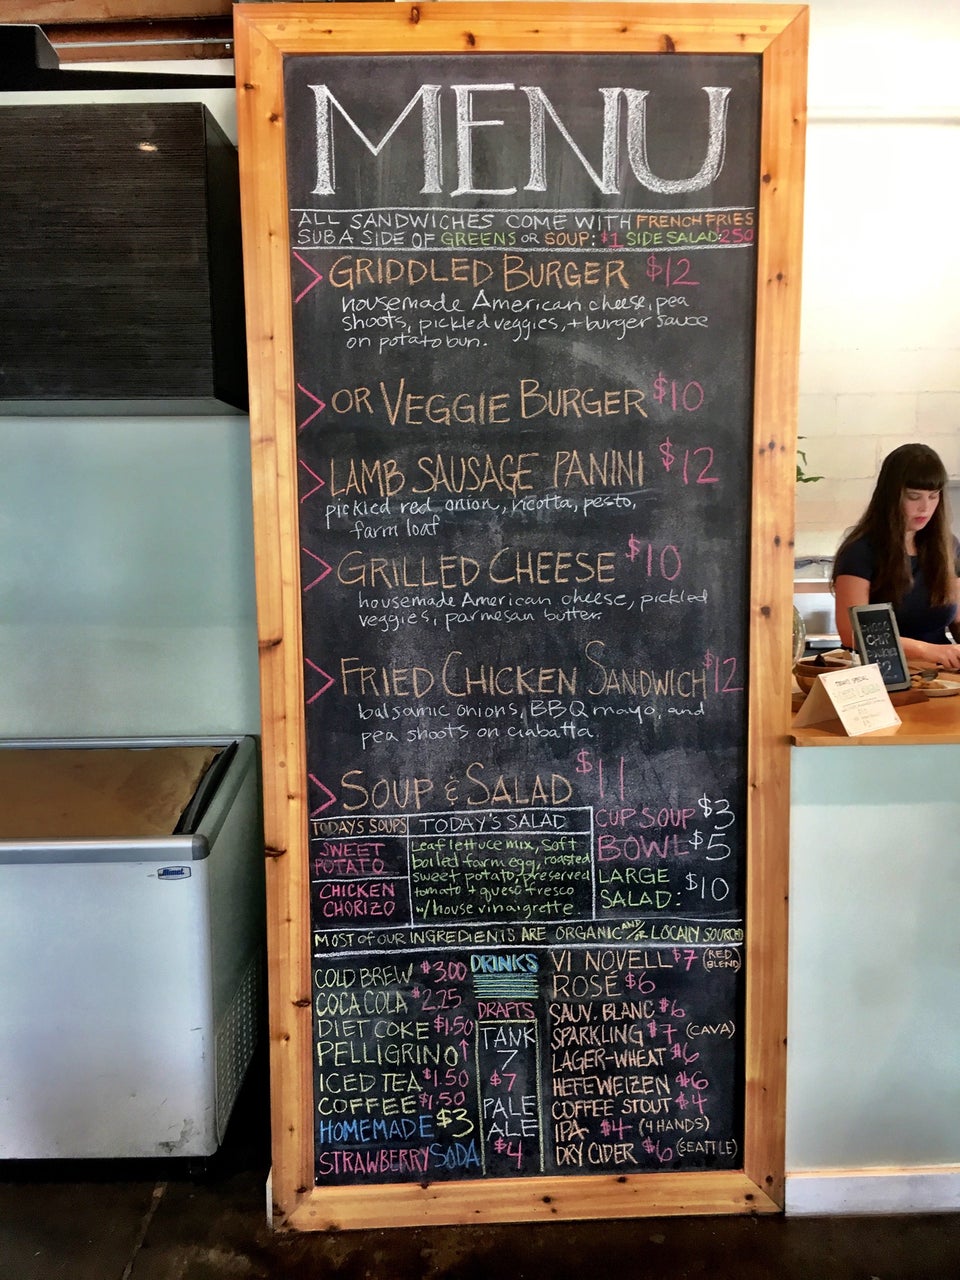 MENU
ALL SANDWICHES COME WITH FRENCH FRIES
SUB A SIDE OF GREENS OR SOUP: $1 SIDE SALAD: 2.50
GRIDDLED BURGER $12
housemade American cheese, pea
shoots, pickled veggies, + burger sauce
on potato bun.
OR VEGGIE BURGER $10
LAMB SAUSAGE PANINI $12
pickled red onion, ricotta, pesto,
farm loaf
GRILLED CHEESE $10
housemade American cheese, pickled
veggies, parmesan butter.
FRIED CHICKEN SANDWICH $12
balsamic onions, BBQ mayo, and
pea shoots on ciabatta.
SOUP & SALAD $11
TODAY'S SOUPS
SWEET
POTATO
CHICKEN
CHORIZO
TODAY'S SALAD
Leaf lettuce mix, soft
boiled farm egg, roasted
sweet potato, preserved
tomato + queso fresco
w/ house vinaigrette.
CUP SOUP $3
BOWL $5
LARGE
SALAD: $10
MOST OF OUR INGREDIENTS ARE ORGANIC AND/OR LOCALLY SOURCED
COLD BREW $3.00
COCA COLA $2.25
DIET COKE $1.50
PELLIGRINO ↑
ICED TEA $1.50
COFFEE $1.50
HOMEMADE $3
STRAWBERRY SODA
DRINKS
DRAFTS
TANK
7
$7
PALE
ALE
$4
VI NOVELL $7 (RED BLEND)
ROSÉ $6
SAUV. BLANC $6
SPARKLING $7 (CAVA)
LAGER-WHEAT $6
HEFEWEIZEN $6
COFFEE STOUT $4
IPA $4 (4 HANDS)
DRY CIDER $6 (SEATTLE)
CHOCO
CHIP
$2
TODAY'S SPECIAL